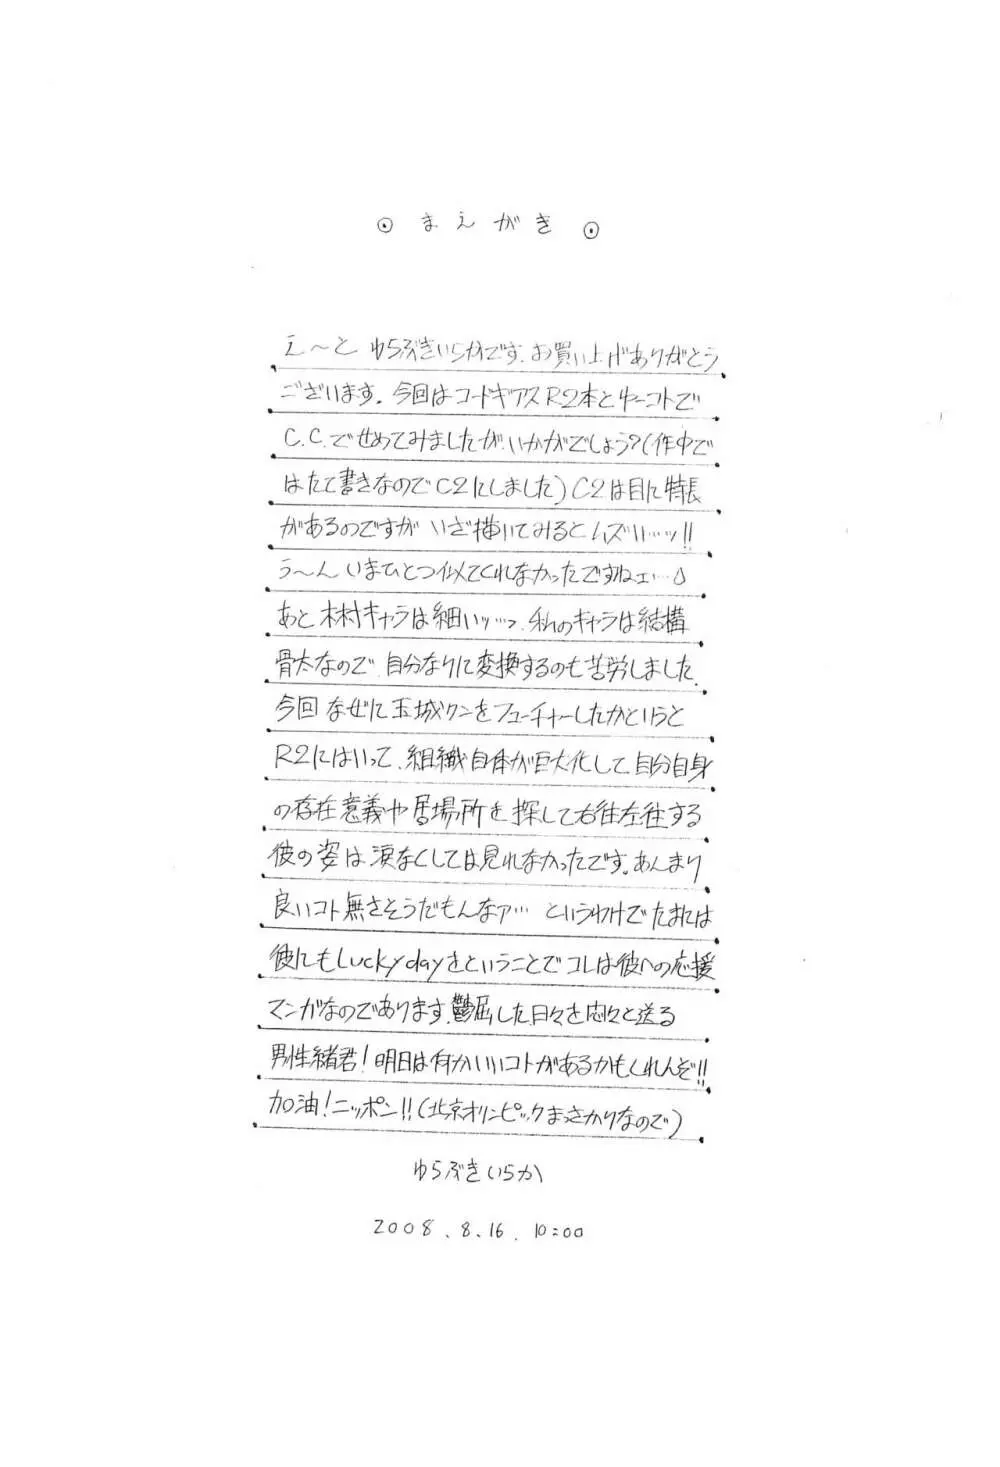 まえがき
え〜と ゆらぶきいらかです。お買い上げありがとう
ございます。今回はコードギアスR2本とゆーコトで
C.C.で せめてみましたが、いかがでしょう?(作中で
はたて書きなのでC2にしました)C2は目に特長
があるのですが いざ描いてみるとムズいい…ッ!!
う〜ん いまひとつ似てくれなかったですねェ…
あと 木村キャラは細いッ…っ、私のキャラは結構
骨太なので、自分なりに変換するのも苦労しました。
今回 なぜに玉城クンをフューチャーしたかというと
R2にはいって、組織自体が巨大化して自分自身
の存在意義や居場所を探して右往左往する
彼の姿は涙なくしては見れなかったです。あんまり
良いコト無さそうだもんなァ… というわけで たまには
彼にもLucky dayをということで コレは彼への応援
マンガなのであります。鬱屈した日々を悶々と送る
男性緒君!明日は何かいいコトがあるかもしれんぞ!!
加油!ニッポン!!(北京オリンピックまっさかりなので)
ゆらぶきいらか
2008.8.16. 10:00